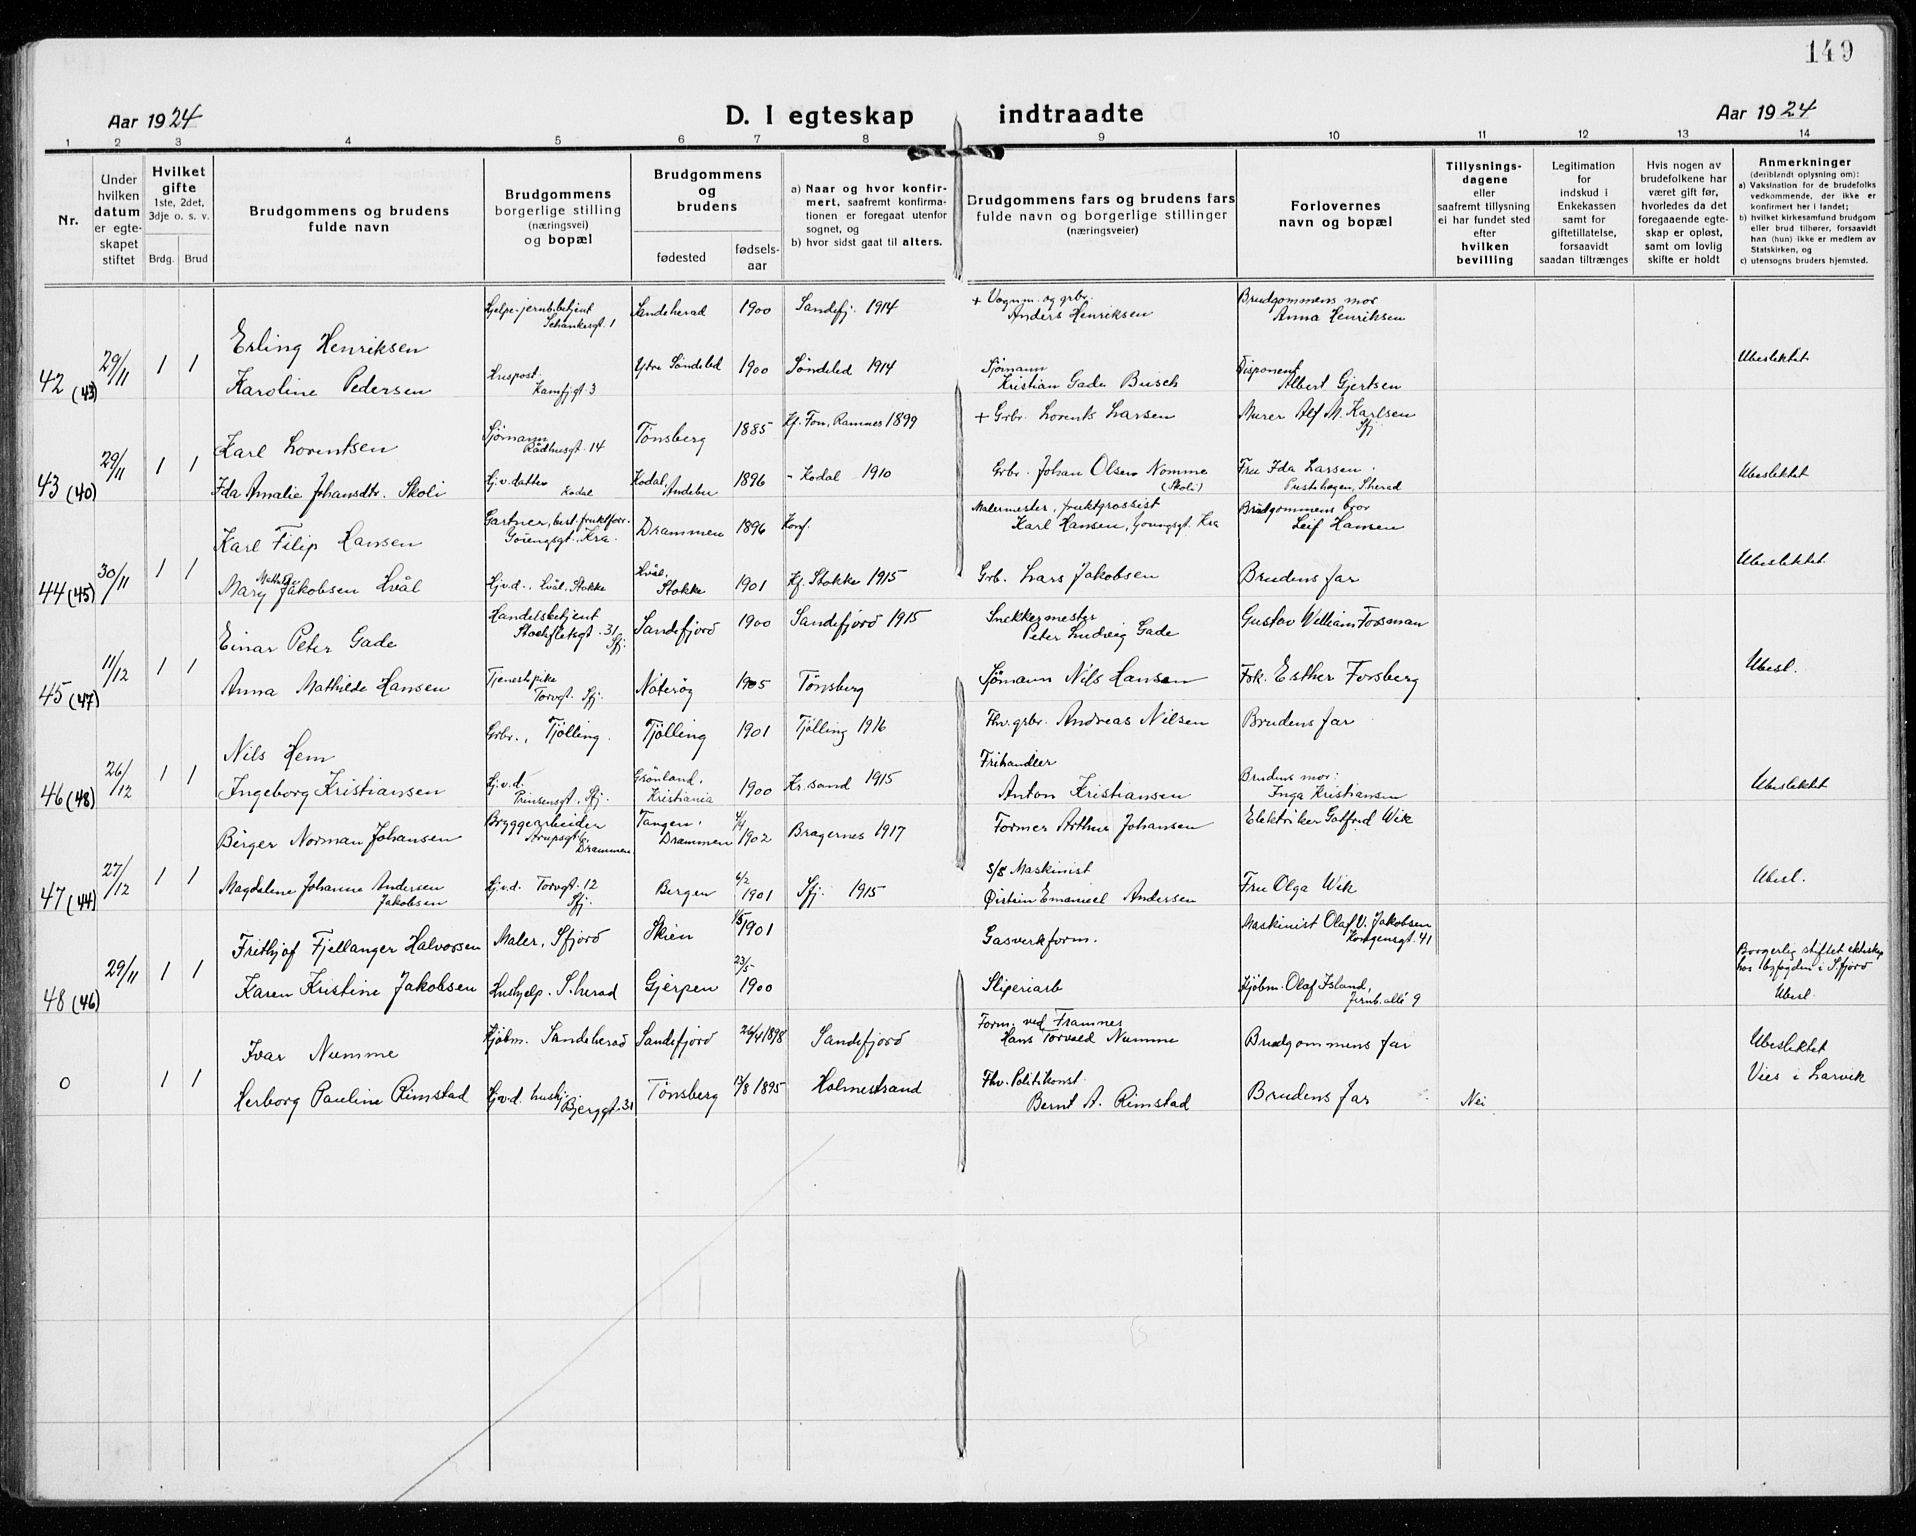 149
Aar 1924
D. I egteskap indtraadte
Aar 1924
1 2 3 4 5 6 7 8 9 10 11 12 13 14
Nr.
Under hvilken datum er egteskapet stiftet
Hvilket gifte 1ste, 2det, 3dje o. s. v.
Brdg. Brud
Brudgommens og brudens fulde navn
Brudgommens borgerlige stilling (næringsvei) og bopæl
Brudgommens og brudens
fødested
fødsels-aar
a) Naar og hvor konfirmert, saafremt konfirmationen er foregaat utenfor sognet, og
b) hvor sidst gaat til alters.
Brudgommens fars og brudens fars fulde navn og borgerlige stillinger (næringsveier)
Forlovernes navn og bopæl
Tillysningsdagene eller saafremt tillysning ei har fundet sted efter hvilken bevilling
Legitimation for indskud i Enkekassen samt for giftetillatelse, forsaavidt saadan tiltrænges
Hvis nogen av brudefolkene har været gift før, hvorledes da det foregaaende egteskap er opløst, samt om lovlig skifte er holdt
Anmerkninger (deriblandt oplysning om):
a) Vaksination for de brudefolks vedkommende, der ikke er konfirmert her i landet;
b) hvilket kirkesamfund brudgom eller brud tilhører, forsaavidt han (hun) ikke er medlem av Statskirken, og
c) utensogns bruders hjemsted.
Erling Henriksen Hjelpe-jernb.betjent Schankesgt. 1 Sandeherad 1900 Sandefj. 1914 + Vognm. og grbr. Anders Henriksen Brudgommens mor Anna Henriksen
42 (43) 29/11 1 1 Karoline Pedersen Huspost. Kamfjgt. 3 Ytre Søndeled 1900 Søndeled 1914 Sjømann Kristian Gade Busch Disponent Albert Gjertsen Ubeslektet
Karl Lorentsen Sjømann Rådhusgt. 14 Tønsberg 1885 Kf. Fon, Ramnes 1899 + Grbr. Lorents Larsen Murer Alf M. Karlsen Sfj.
43 (40) 29/11 1 1 Ida Amalie Johansdtr. Skoli Hj.v.datter Kodal Kodal, Andebu 1896 - Kodal 1910 Grbr. Johan Olsen Nomme (Skoli) Fru Ida Larsen Prestehagen, Sherad Ubeslektet
Karl Filip Hansen Gartner, best. fruktforr. Kra. Drammen 1896 Konf. Malermester, fruktgrossist Karl Hansen, Youngsgt. Kra Brudgommens bror Leif Hansen
44 (45) 30/11 1 1 Mary Mathilde Jakobsen Hvål Hj.v.d. Hvål, Stokke Hvål, Stokke 1901 Kf. Stokke 1915 Grb. Lars Jakobsen Brudens far Ubeslektet
Einar Peter Gade Handelsbetjent Stockfletsgt. 31 Sfj. Sandefjord 1900 Sandefjord 1915 Snekkermester Peter Ludvig Gade Gustav William Forsman
45 (47) 11/12 1 1 Anna Mathilde Hansen Tjenestpike Torvgt. Sfj. Nøterøy 1905 Tønsberg Sjømann Nils Hansen Frk. Esther Forsberg Ubesl.
Nils Hem Grbr., Tjølling Tjølling 1901 Tjølling 1916 Fhv. grbr. Andreas Nilsen Brudens far
46 (48) 26/12 1 1 Ingeborg Kristiansen Hj.v.d. Prinsensgt. Sfj. Grønland, Kristiania 1900 Kr.sand 1915 Frihandler Anton Kristiansen Brudens mor: Inga Kristiansen Ubeslektet
Birger Norman Johansen Bryggearbeider Arupsgt. 6 Drammen Tangen, Drammen 4/4 1902 Bragernes 1917 Former Arthur Johansen Elektriker Gotfred Wik
47 (44) 27/12 1 1 Magdelene Johanne Andersen Jakobsen Hj.v.d. Torvgt. 12 Sfj. Bergen 6/2 1901 Sfj. 1915 S/S Maskinist Øistein Emanuel Andersen Fru Olga Wik Ubesl.
Frithjof Fjellanger Halvorsen Maler, Sfjord Skien 1/5 1901 Gasverkform. Maskinist Olaf V. Jakobsen Kongensgt. 41
48 (46) 29/11 1 1 Karen Kristine Jakobsen Hushjelp. S.herad Gjerpen 23/5 1900 Sliperiarb Kjøbm. Olaf Island, Jernb.allé 9 Borgerlig stiftet ekteskap hos byfogden i S.fjord Ubesl.
Ivar Numme Kjøbm. Sandeherad Sandefjord 26/4 1898 Sandefjord Form. ved Framnes Hans Torvald Numme Brudgommens far Ubeslektet
0 1 1 Herborg Pauline Rimstad Hj.v.d. huslj. Bjerggt. 31 Tønsberg 17/8 1895 Holmestrand Fhv. Politikonst. Bernt A. Rimstad Brudens far Nei Vies i Larvik